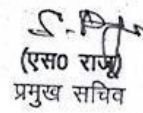 (एस० राजू)
प्रमुख सचिव